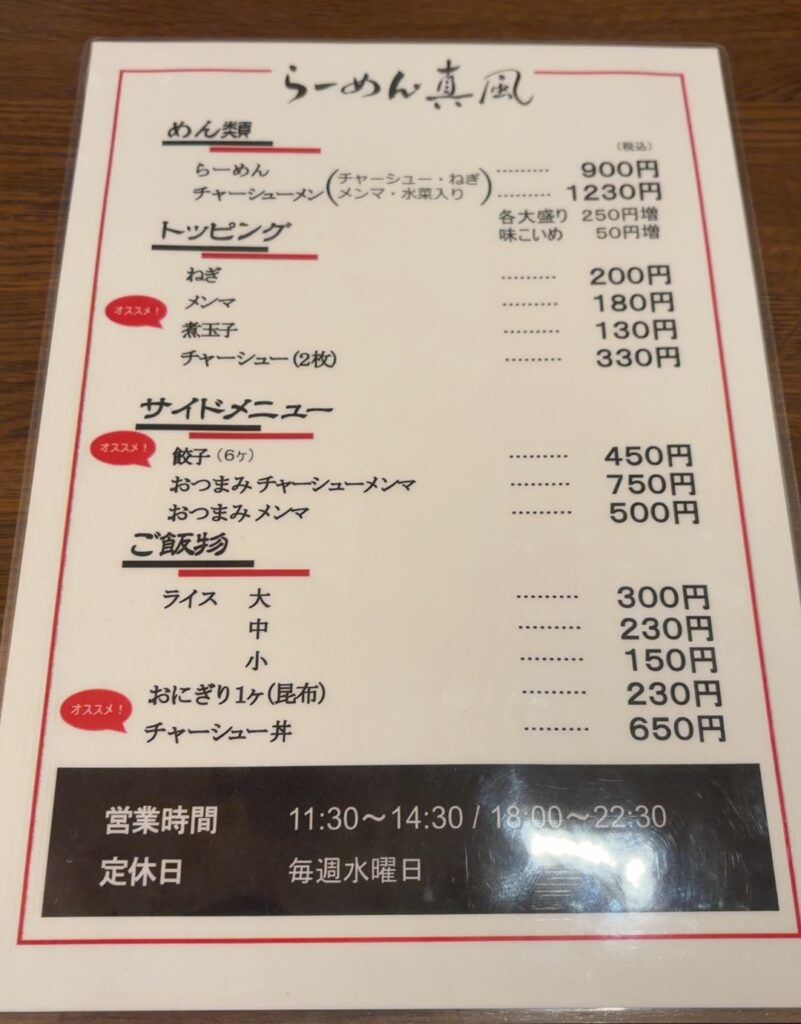 らーめん真風
めん類
(税込)
らーめん ……… 900円
チャーシューメン(チャーシュー・ねぎ メンマ・水菜入り) ……… 1230円
各大盛り 250円増
味こいめ 50円増
トッピング
ねぎ ……… 200円
オススメ! メンマ ……… 180円
煮玉子 ……… 130円
チャーシュー(2枚) ……… 330円
サイドメニュー
オススメ! 餃子(6ヶ) ……… 450円
おつまみ チャーシューメンマ ……… 750円
おつまみ メンマ ……… 500円
ご飯物
ライス 大 ……… 300円
中 ……… 230円
小 ……… 150円
おにぎり1ヶ(昆布) ……… 230円
オススメ! チャーシュー丼 ……… 650円
営業時間 11:30~14:30 / 18:00~22:30
定休日 毎週水曜日